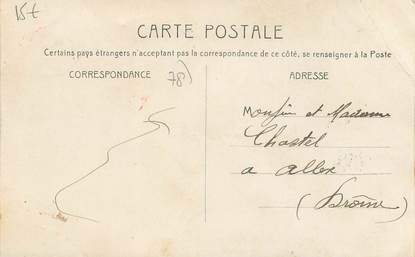 15t
CARTE POSTALE
Certains pays étrangers n'acceptant pas la correspondance de ce côté, se renseigner à la Poste
CORRESPONDANCE
78)
ADRESSE
Monsieur et Madame
Chastel
a allex
(Drôme)